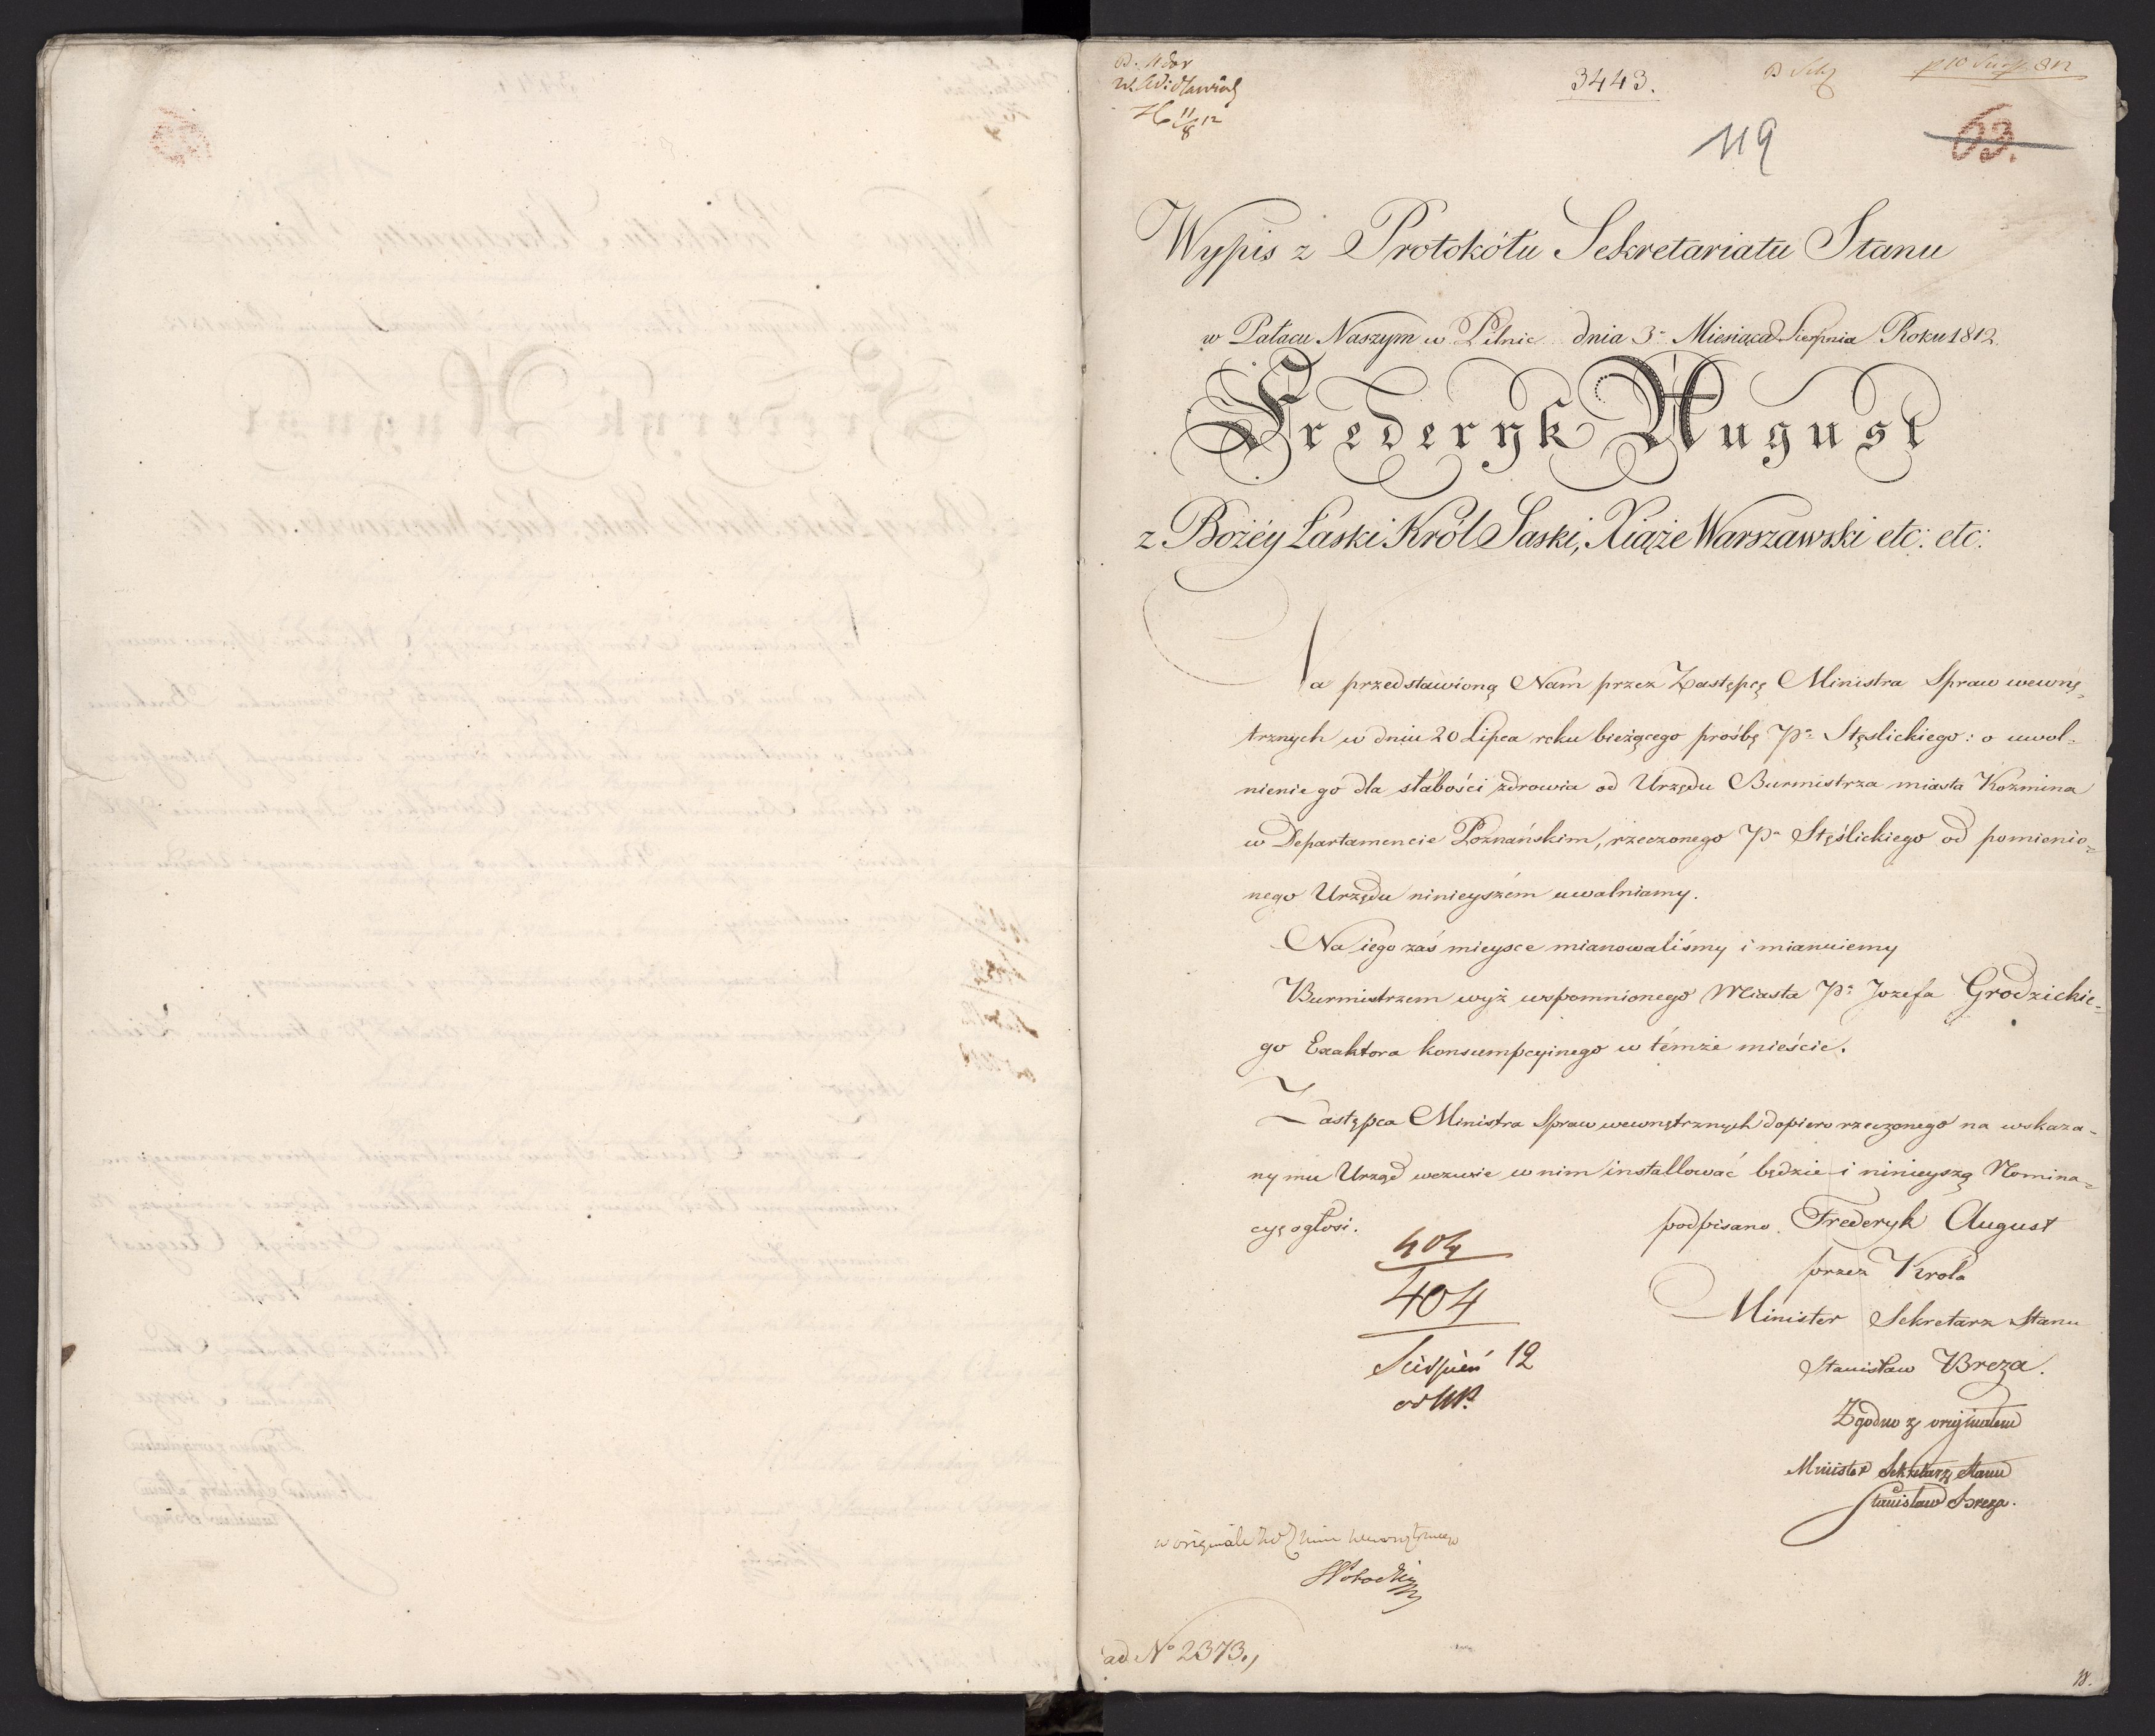 3443.
119
63.
Wypis z Protokółu Sekretariatu Stanu
w Pałacu Naszym w Pilnic dnia 3º Miesiąca Sierpnia Roku 1812.
Frederyk August
z Bożéy Łaski Król Saski, Xiąże Warszawski etc: etc:
Na przedstawioną Nam przez Zastępcę Ministra Spraw wewnę-
trznych w dniu 20 Lipca roku bieżącego prośbę Pª Stęslickiego: o uwol-
nienie go dla słabości zdrowia od Urzędu Burmistrza miasta Koźmina
w Departamencie Poznańskim, rzeczonego Pª Stęślickiego od pomienio-
nego Urzędu ninieyszém uwalniamy.
Na iego zaś mieysce mianowaliśmy i mianuiemy
Burmistrzem wyż wspomnionego Miasta Pª Jozefa Grodzickie-
go Exaktora konsumpcyinego w témże mieście.
Zastępca Ministra Spraw wewnętrznych dopiero rzeczonego na wskaza-
ny mu Urząd wezwie w nim installować będzie i ninieyszą Nomina-
cyę ogłosi.
podpisano Frederyk August
404
przez Krola
404
Minister Sekretarz Stanu
Sierpień 12
Stanisław Breza.
Zgodno z oryginałem
Minister Sekretarz Stanu
Stanisław Breza.
ad Nº 2373.
18.